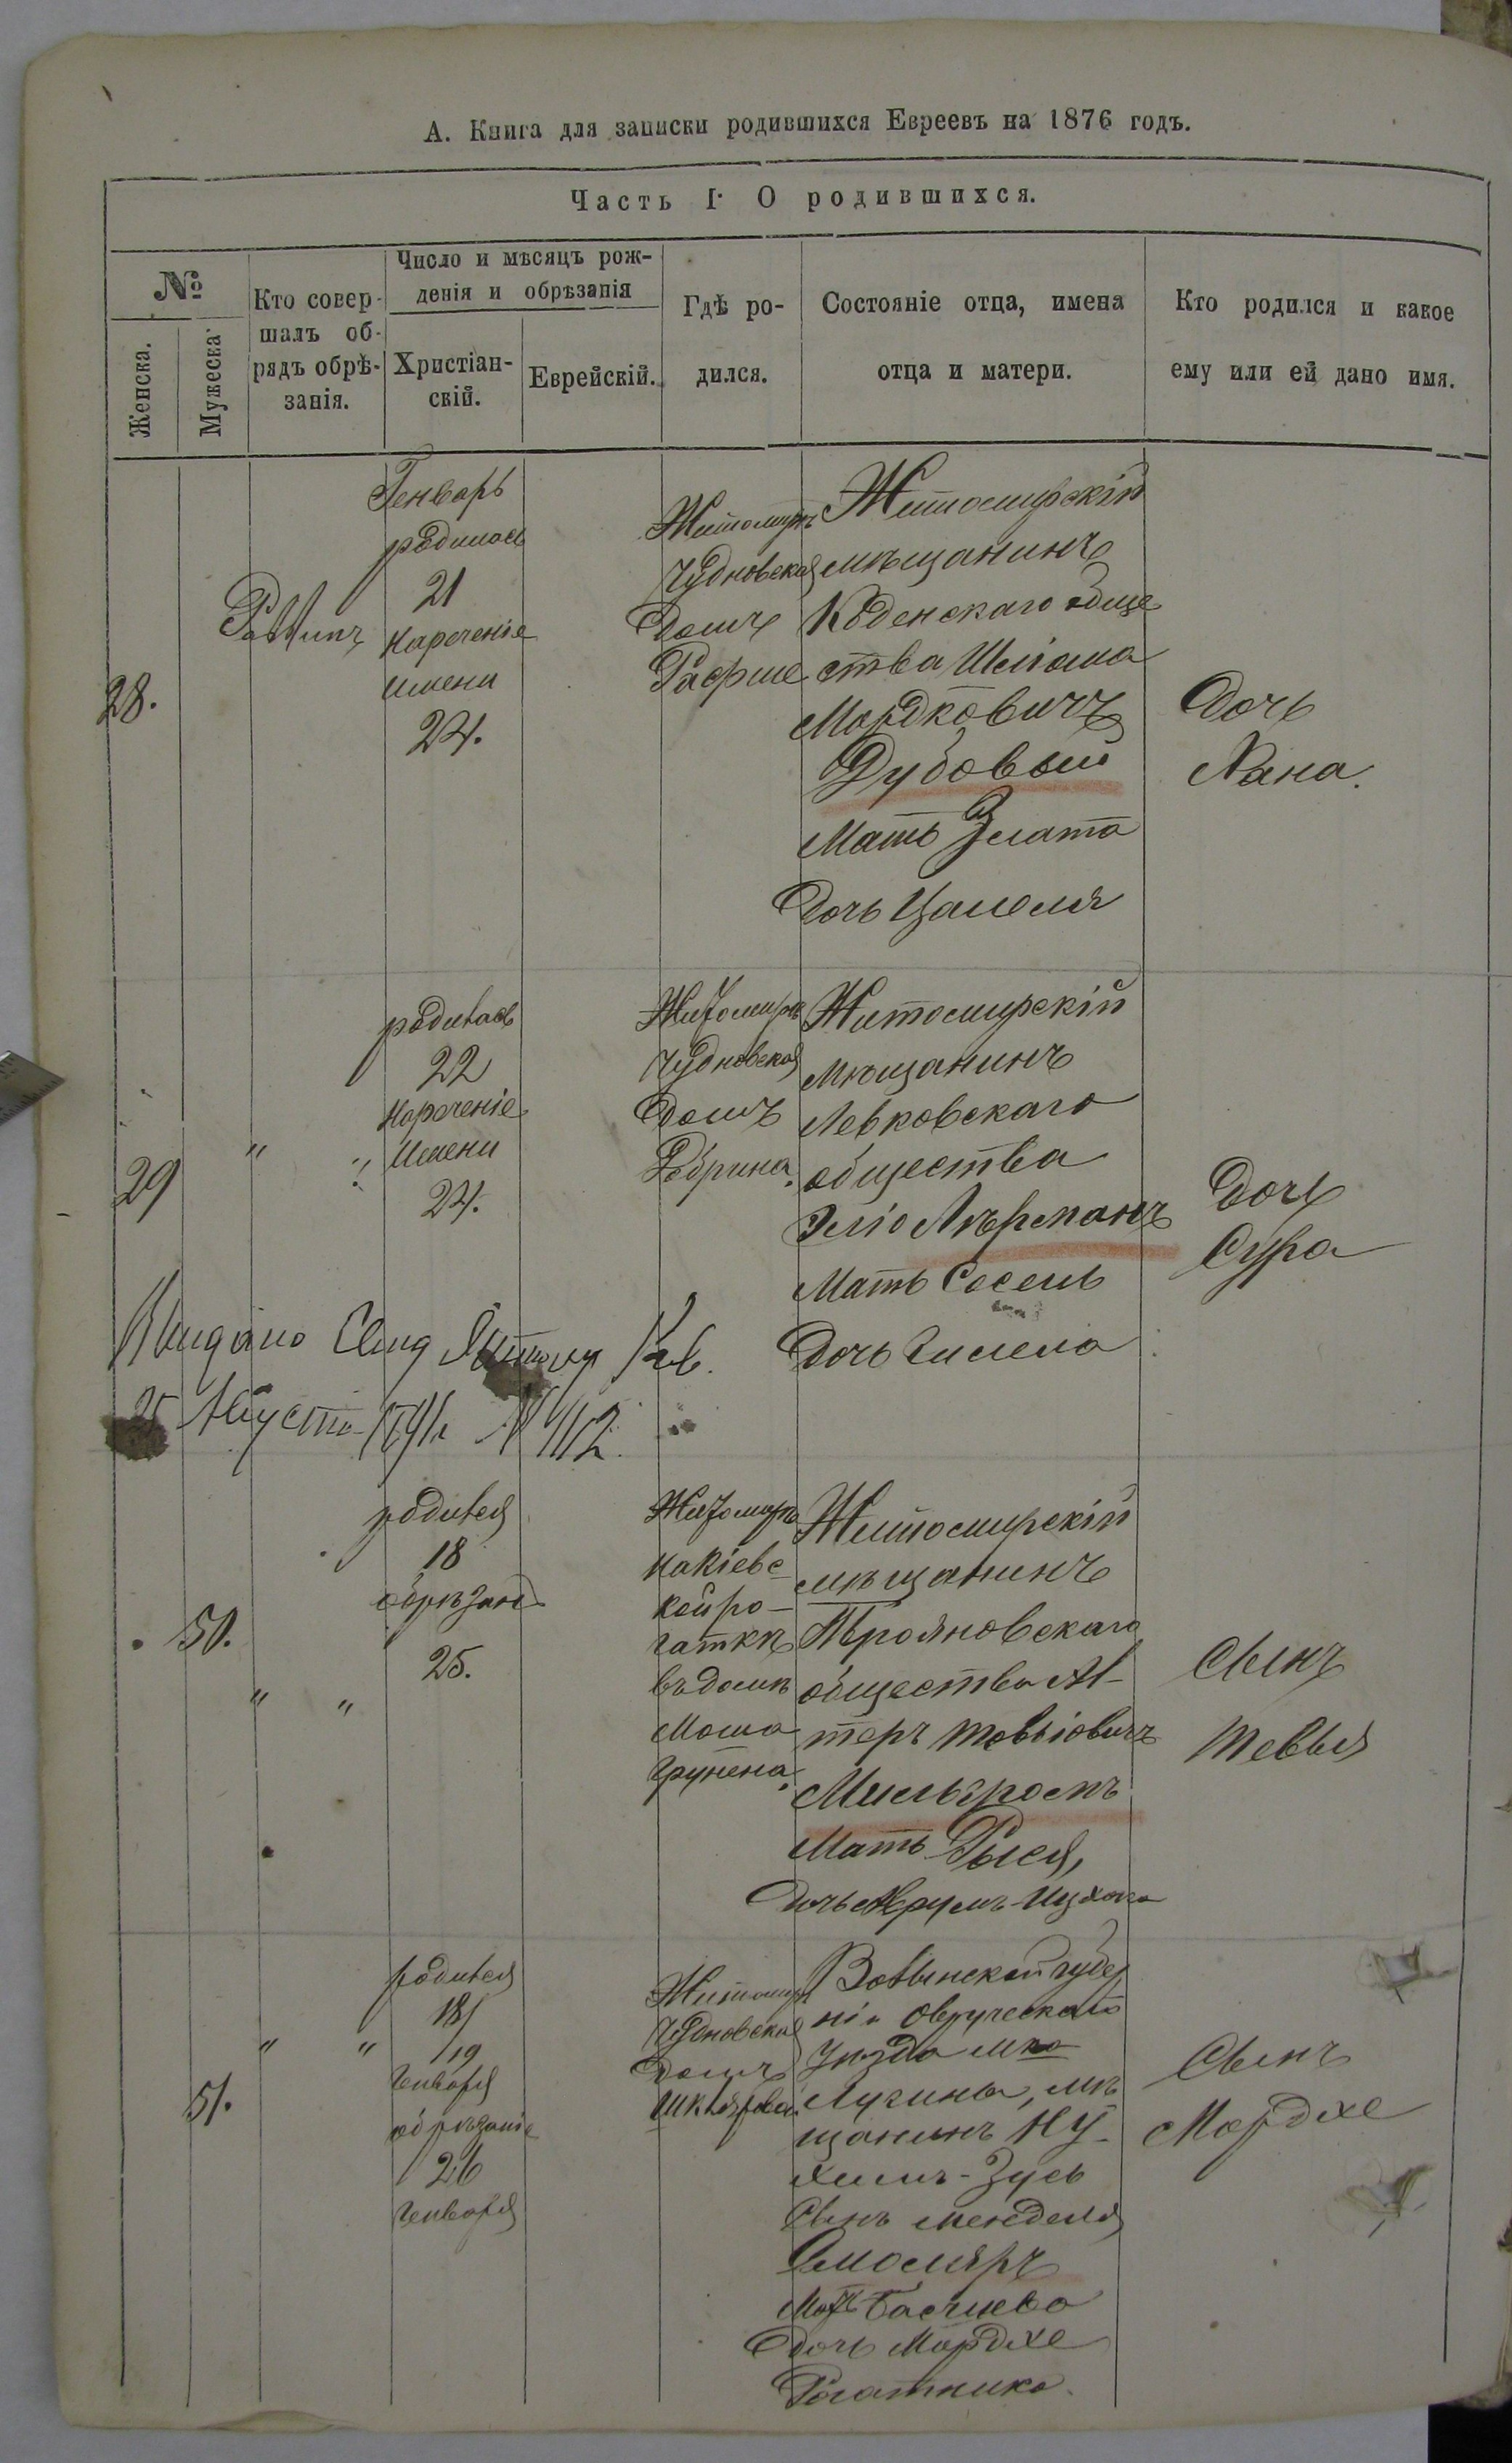 А. Книга для записки родившихся Евреевъ на 1876 годъ.
Часть I. О родившихся.
№
Женска.
Мужеска
Кто совер-
шалъ об-
рядъ обрѣ-
занія.
Число и мѣсяцъ рож-
денія и обрѣзанія
Христіан-
скій.
Еврейскій.
Гдѣ ро-
дился.
Состояніе отца, имена
отца и матери.
Кто родился и какое
ему или ей дано имя.
28.
Раввинъ
Генварь
родилась
21
нареченіе
имени
24.
Житомиръ
Чудновская
домъ
Житомирскій
мѣщанинъ
Коденскаго обще
ства Шліома
Мордковичъ
Дубовый
Мать Злата
дочь Цалеля
Дочь
Хана.
29
"
"
родилась
22
Нареченіе
Имени
24.
Житомиръ
Чудновская
домъ
Житомирскій
мѣщанинъ
Левковскаго
общества
Эліо Лѣрманъ
Мать Сосель
дочь Гилела
Дочь
Сура
25 Августа
50.
"
"
родился
18
обрѣзан
25.
Житомиръ
на Кіевс-
кой ро-
гаткѣ
въ домѣ
Моша
Грунена.
Житомирскій
мѣщанинъ
Трояновскаго
общества Ал-
теръ Товьіовичъ
Мильгромъ
Мать Рыся,
дочь Аврумъ-Ицхока
Сынъ
Тевья
51.
"
"
родился
18/
19
Генваря
обрѣзаніе
26
Генваря
Житомиръ
Чудновская
домъ
Шклярова.
Волынской губер
ніи Овручскаго
Уѣзда мко
Лугины, мѣ
щанинъ Ну-
химъ-Зусь
сынъ Менделя
Смоляръ
Мать Басшева
дочь Мордхе
Рогатника.
Сынъ
Мордхе